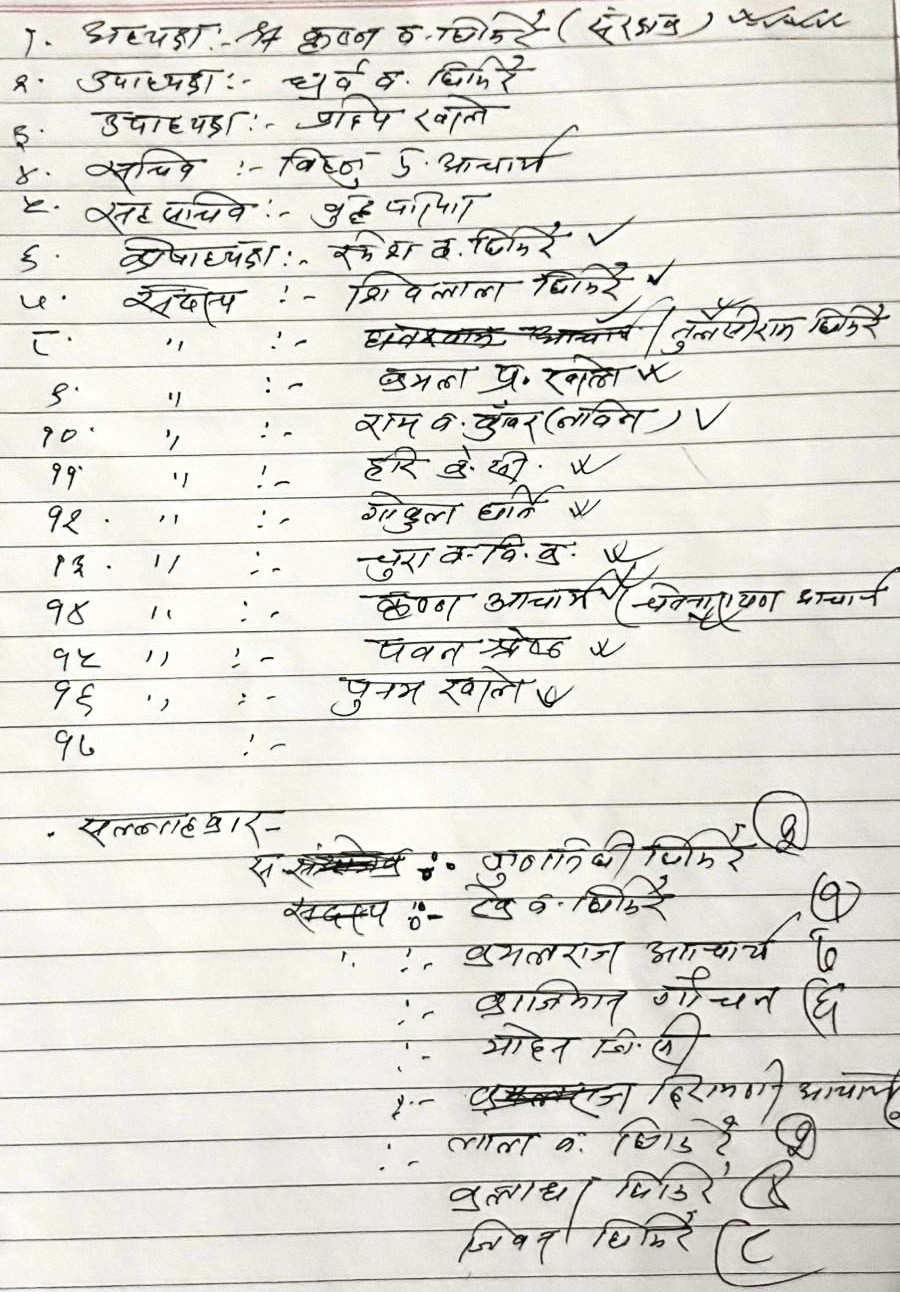 १. अध्यक्ष :- श्री कृष्ण ब. घिमिरे (संरक्षक)
२. उपाध्यक्ष :- ध्रुर्व ब. घिमिरे
३. उपाध्यक्ष :- प्रदिप खाले
४. सचिव :- विष्णु प्र. आचार्य
५. सह सचिव :-
६. कोषाध्यक्ष :- रमेश ब. घिमिरे ✓
७. सदस्य :- शिवलाल घिमिरे ✓
८. " :- आचार्य / तुलसीराम घिमिरे
९. " :- कमला प्र. खाले
१० " :- राम ब. कुँवर (नविन) ✓
११ " :- हरि के. सी.
१२ . " :- गोकुल घर्ति
१३ . " :- चुरा ब. वि. क.
१४ " :- कृष्ण आचार्य ( आचार्य
१५ " :- पवन श्रेष्ठ
१६ " :- पुनम खाले
१७ :-
. सल्लाहकार -
स. :- गुणनिधी घिमिरे २
सदस्य :- टेक ब. घिमिरे १
" :- कमलराज आचार्य ७
:- काजिमान गौचन ६
:- मोहन जि. सी
:- हिरामणी आचार्य
:- लाल ब. घिमिरे
घिमिरे ४
जिवन घिमिरे ८